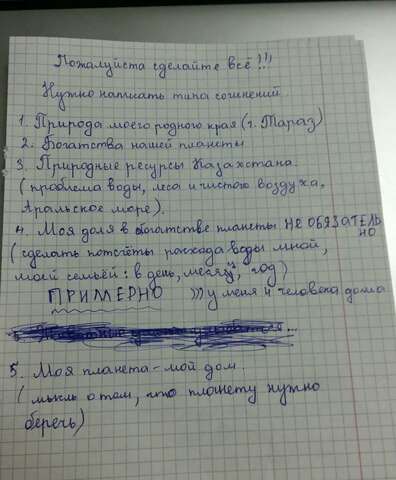 Пожалуйста сделайте всё !!!
Нужно написать типа сочинений
1. Природа моего родного края (г. Тараз)
2. Богатства нашей планеты
3. Природные ресурсы Казахстана.
(проблема воды, леса и чистого воздуха,
Аральское море).
4. Моя доля в богатстве планеты НЕ ОБЯЗАТЕЛЬНО
(сделать потсчёты расхода воды мной,
моей семьёй: в день, месяц, год)
ПРИМЕРНО )))у меня 4 человека дома
5. Моя планета - мой дом.
(мысль о том, что планету нужно
беречь)